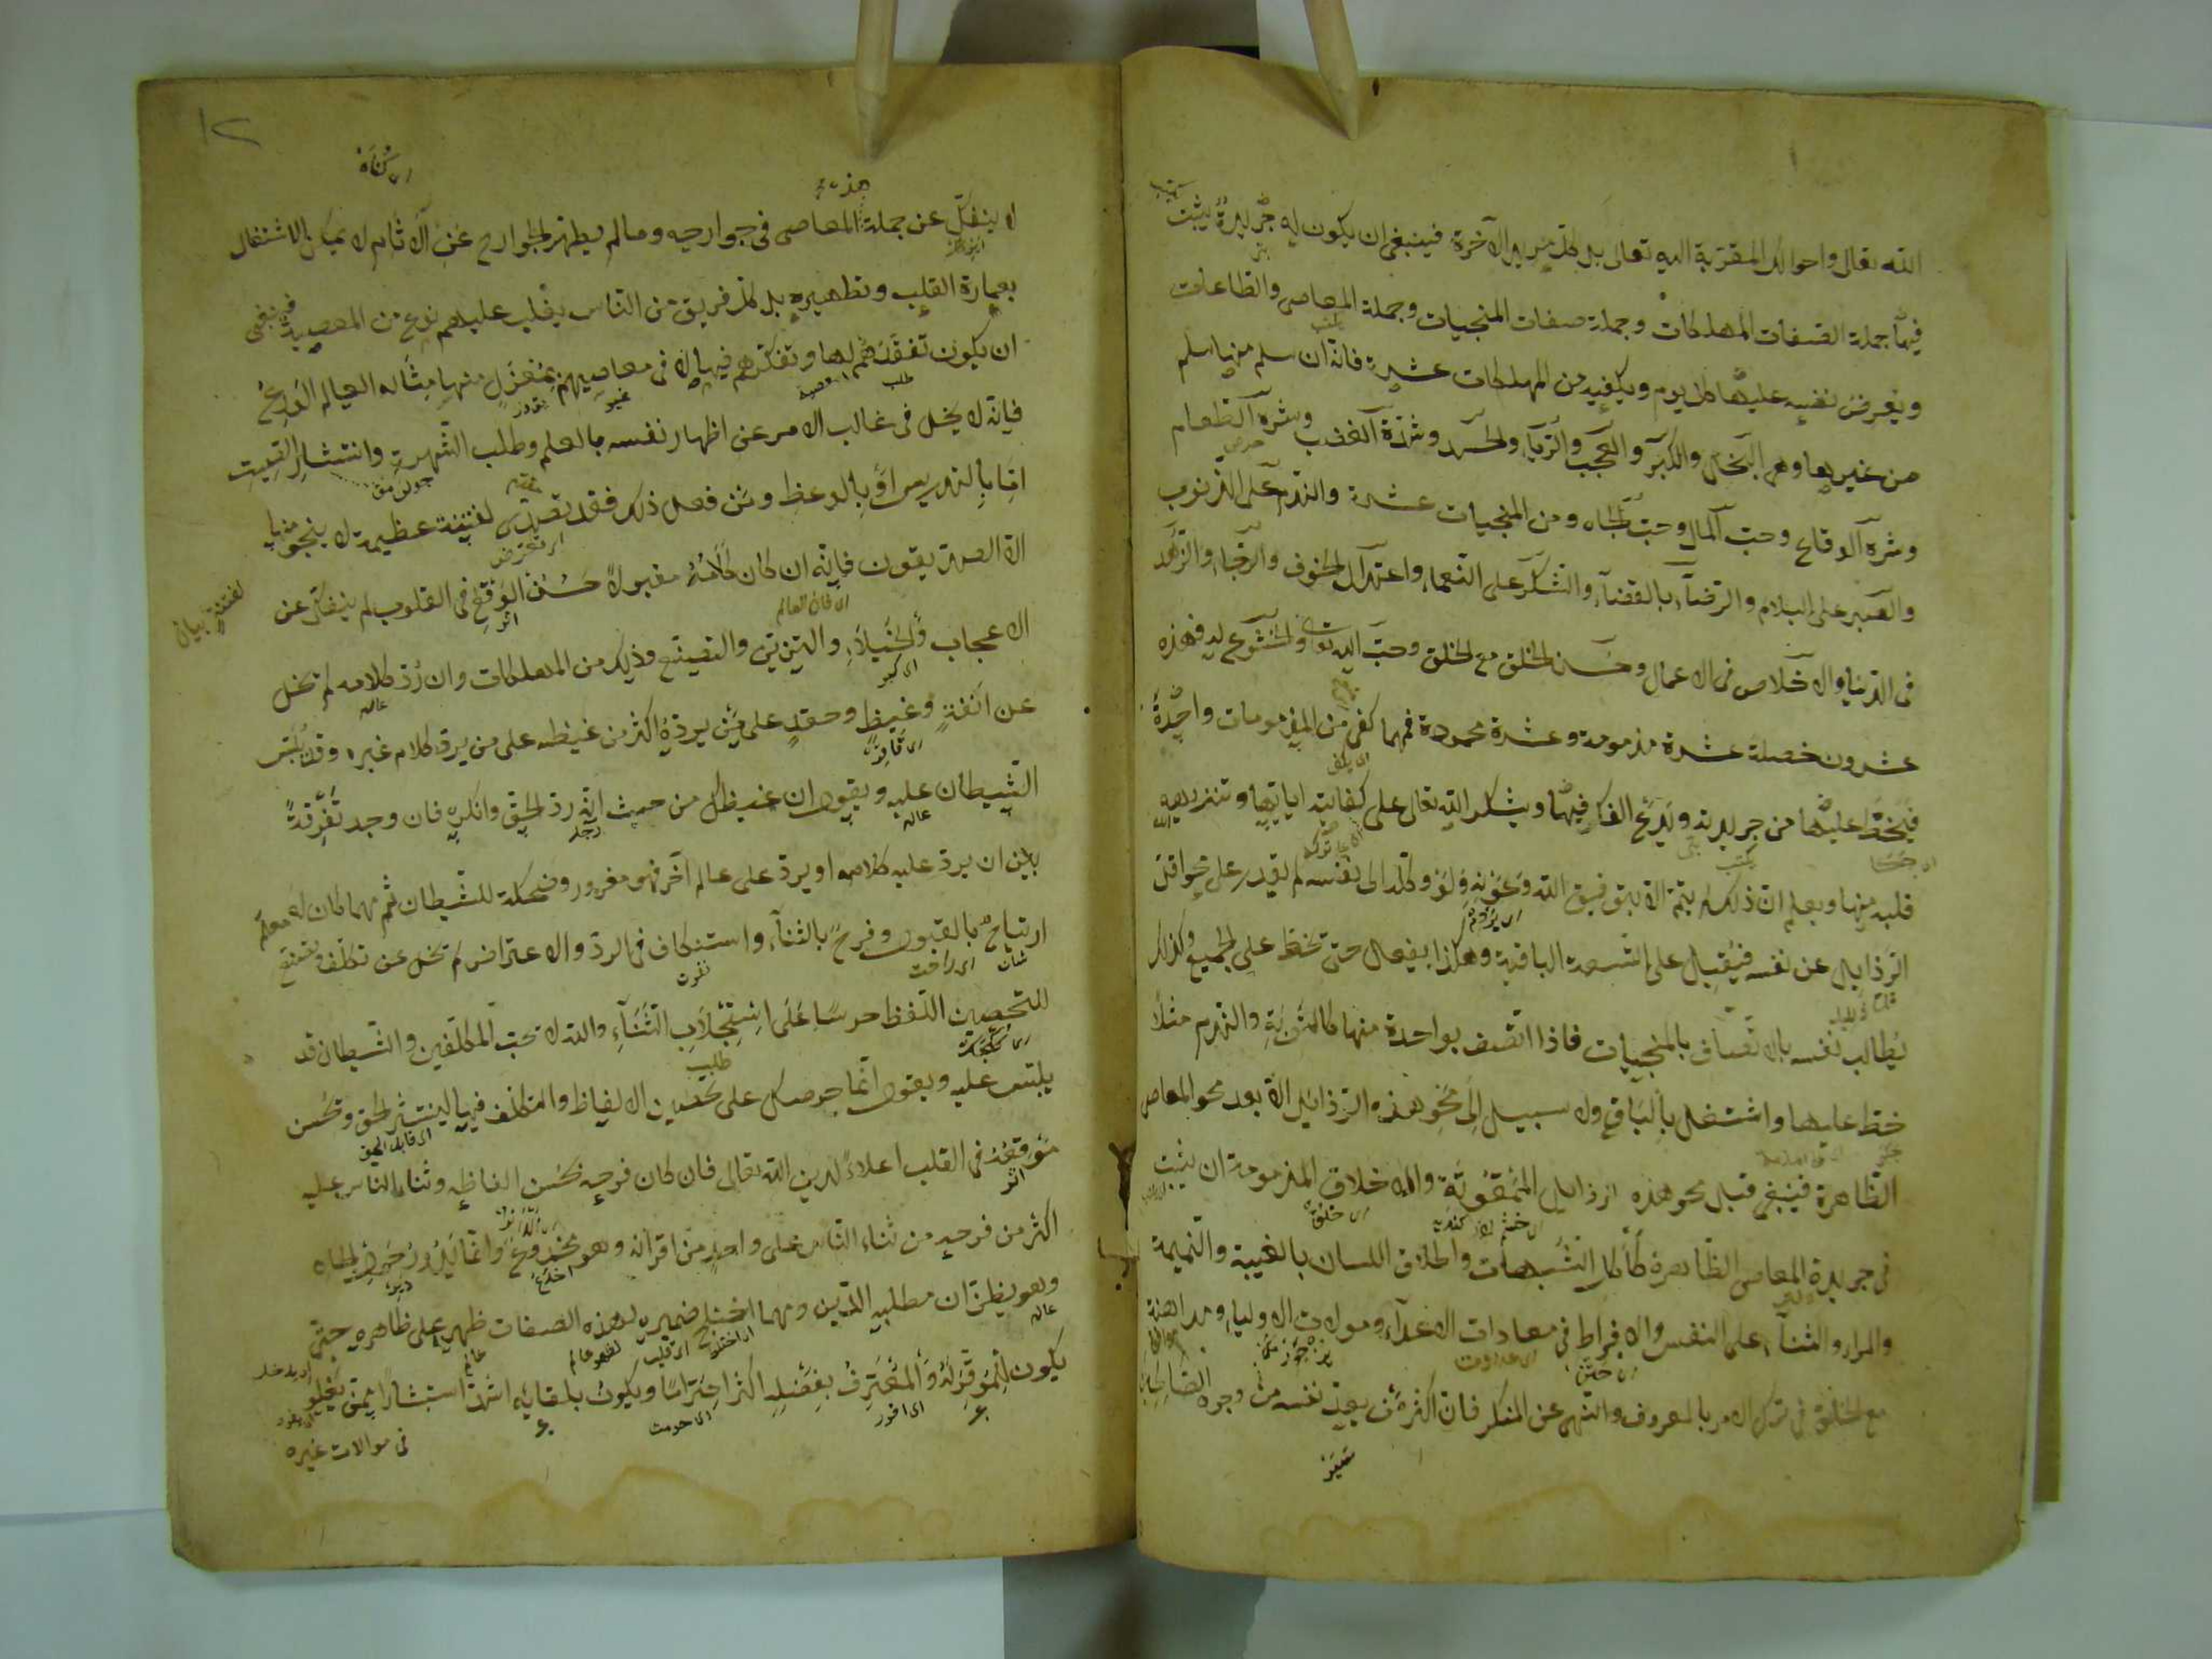 الله تعالى واحوالك المقربة اليه تعالى بل كل مريد الآخرة فينبغى ان يكون له جريدة يثبت
فيها جملة الصفات المهلكات وجملة صفات المنجيات وجملة المعاصى والطاعات
ويعرض نفسه عليها كل يوم ويكفيه من المهلكات عشرة فانه ان سلم منها سلم
من غيرها وهى البخل والكبر والعجب والريا والحسد وشدة الغضب وشره الطعام
وشره الوقاع وحب المال وحب الجاه ومن المنجيات عشرة والندم على الذنوب
والصبر على البلاء والرضاء بالقضاء والشكر على النعماء واعتدال الخوف والرجاء والزهد
فى الدنيا والاخلاص فى الاعمال وحسن الخلق مع الخلق وحب الله تعالى والخشوع له فهذه
عشرون خصلة عشرة مذمومة وعشرة محمودة فمهما كفى من المذمومات واحدة
فيخط عليها من جريدته ويدع الفكر فيها ويشكر الله تعالى على كفايته اياها وتنزيهه
قلبه منها ويعلم ان ذلك لم يتم الا بتوفيق الله وعونه ولو وكله الى نفسه لم يقدر على محو اقل
الرذايل عن نفسه فيقبل على التسعة الباقية وهكذا يفعل حتى يخط على الجميع وكذلك
يطالب نفسه بالاتصاف بالمنجيات فاذا اتصف بواحدة منها كالتوبة والندم مثلا
خط عليها واشتغل بالباقى ولا سبيل الى محو هذه الرذائل الا بعد محو المعاصى
الظاهرة فينبغى قبل محو هذه الرذايل الممقوتة والاخلاق المذمومة ان يثبت
فى جريدة المعاصى الظاهرة كأكل الشبهات واطلاق اللسان بالغيبة والنميمة
والمراء والثناء على النفس والافراط فى معادات الاعداء وموالات الاولياء ومداهنة
مع الخلق فى ترك الامر بالمعروف والنهى عن المنكر فان اكثر من يعد نفسه من وجوه الصالحين
١٢
لا ينفك عن جملة هذه المعاصى فى جوارحه وما لم يطهر الجوارح عن الآثام لا يمكن الاشتغال
بعمارة القلب وتطهيره بل كل فريق من الناس يغلب عليهم نوع من المعصية فينبغى
ان يكون تفقدهم لها وتفكرهم فيها لا فى معاصيهم بمعزل منها مثاله العالم الورع
فانه لا يخل فى غالب الامر عن اظهار نفسه بالعلم وطلب الشهرة وانتشار الصيت
اما بالتدريس او بالوعظ ومن فعل ذلك فقد تصدى لفتنة عظيمة لا ينجو منها
الا الصديقون فانه ان كان كلامه مقبولا حسن الوقع فى القلوب لم ينفك عن
الاعجاب والخيلاء والتزين والتصنع وذلك من المهلكات وان رد كلامه لم يخل
عن انفة وغيظ وحقد على من يرده اكثر من غيظه على من يرد كلام غيره وقد يلبس
الشيطان عليه ويقول ان غيظك من حيث انه رد الحق وانكره فان وجد تفرقة
بين ان يرد عليه كلامه او يرد على عالم آخر فهو مغرور وضحكة للشيطان ثم مهما كان له
ارتياح بالقبول وفرح بالثناء واستنكاف فى الرد والاعتراض لم يخل عن تكلف وتصنع
لتحصين اللفظ حرصا على استجلاب الثناء والله لا يحب المتكلفين والشيطان قد
يلبس عليه ويقول انما حرصك على تحصين الالفاظ والتكلف فيها لينتشر الحق وتحسن
موقعه فى القلب اعلاء لدين الله تعالى فان كان فرحه بحسن الفاظه وثناء الناس عليه
اكثر من فرحه من ثناء الناس على واحد من اقرانه وهو مخدوع وانما يدور حول الجاه
وهو يظن ان مطلبه الدين ومهما اختلج ضميره لهذه الصفات ظهر على ظاهره حتى
يكون للموقر له والمعترف بفضله اكثر احتراما ويكون بلقائه اشد استبشارا ممن يغلو
فى موالات غيره